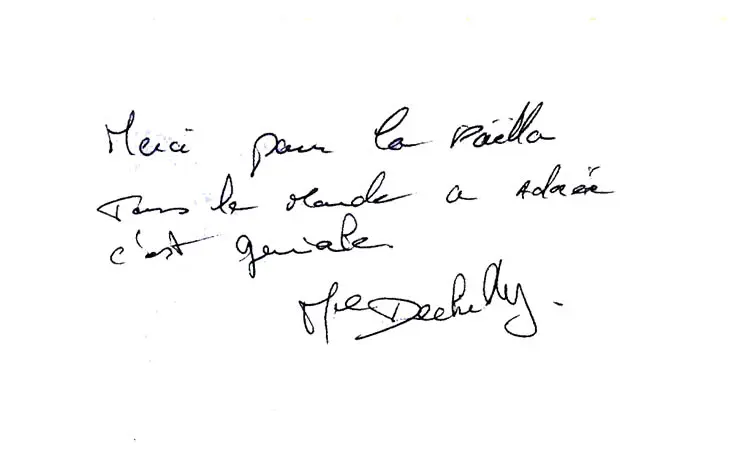 Merci pour la Païlla
Tous le monde a adorée
c'est geniale.
Mle